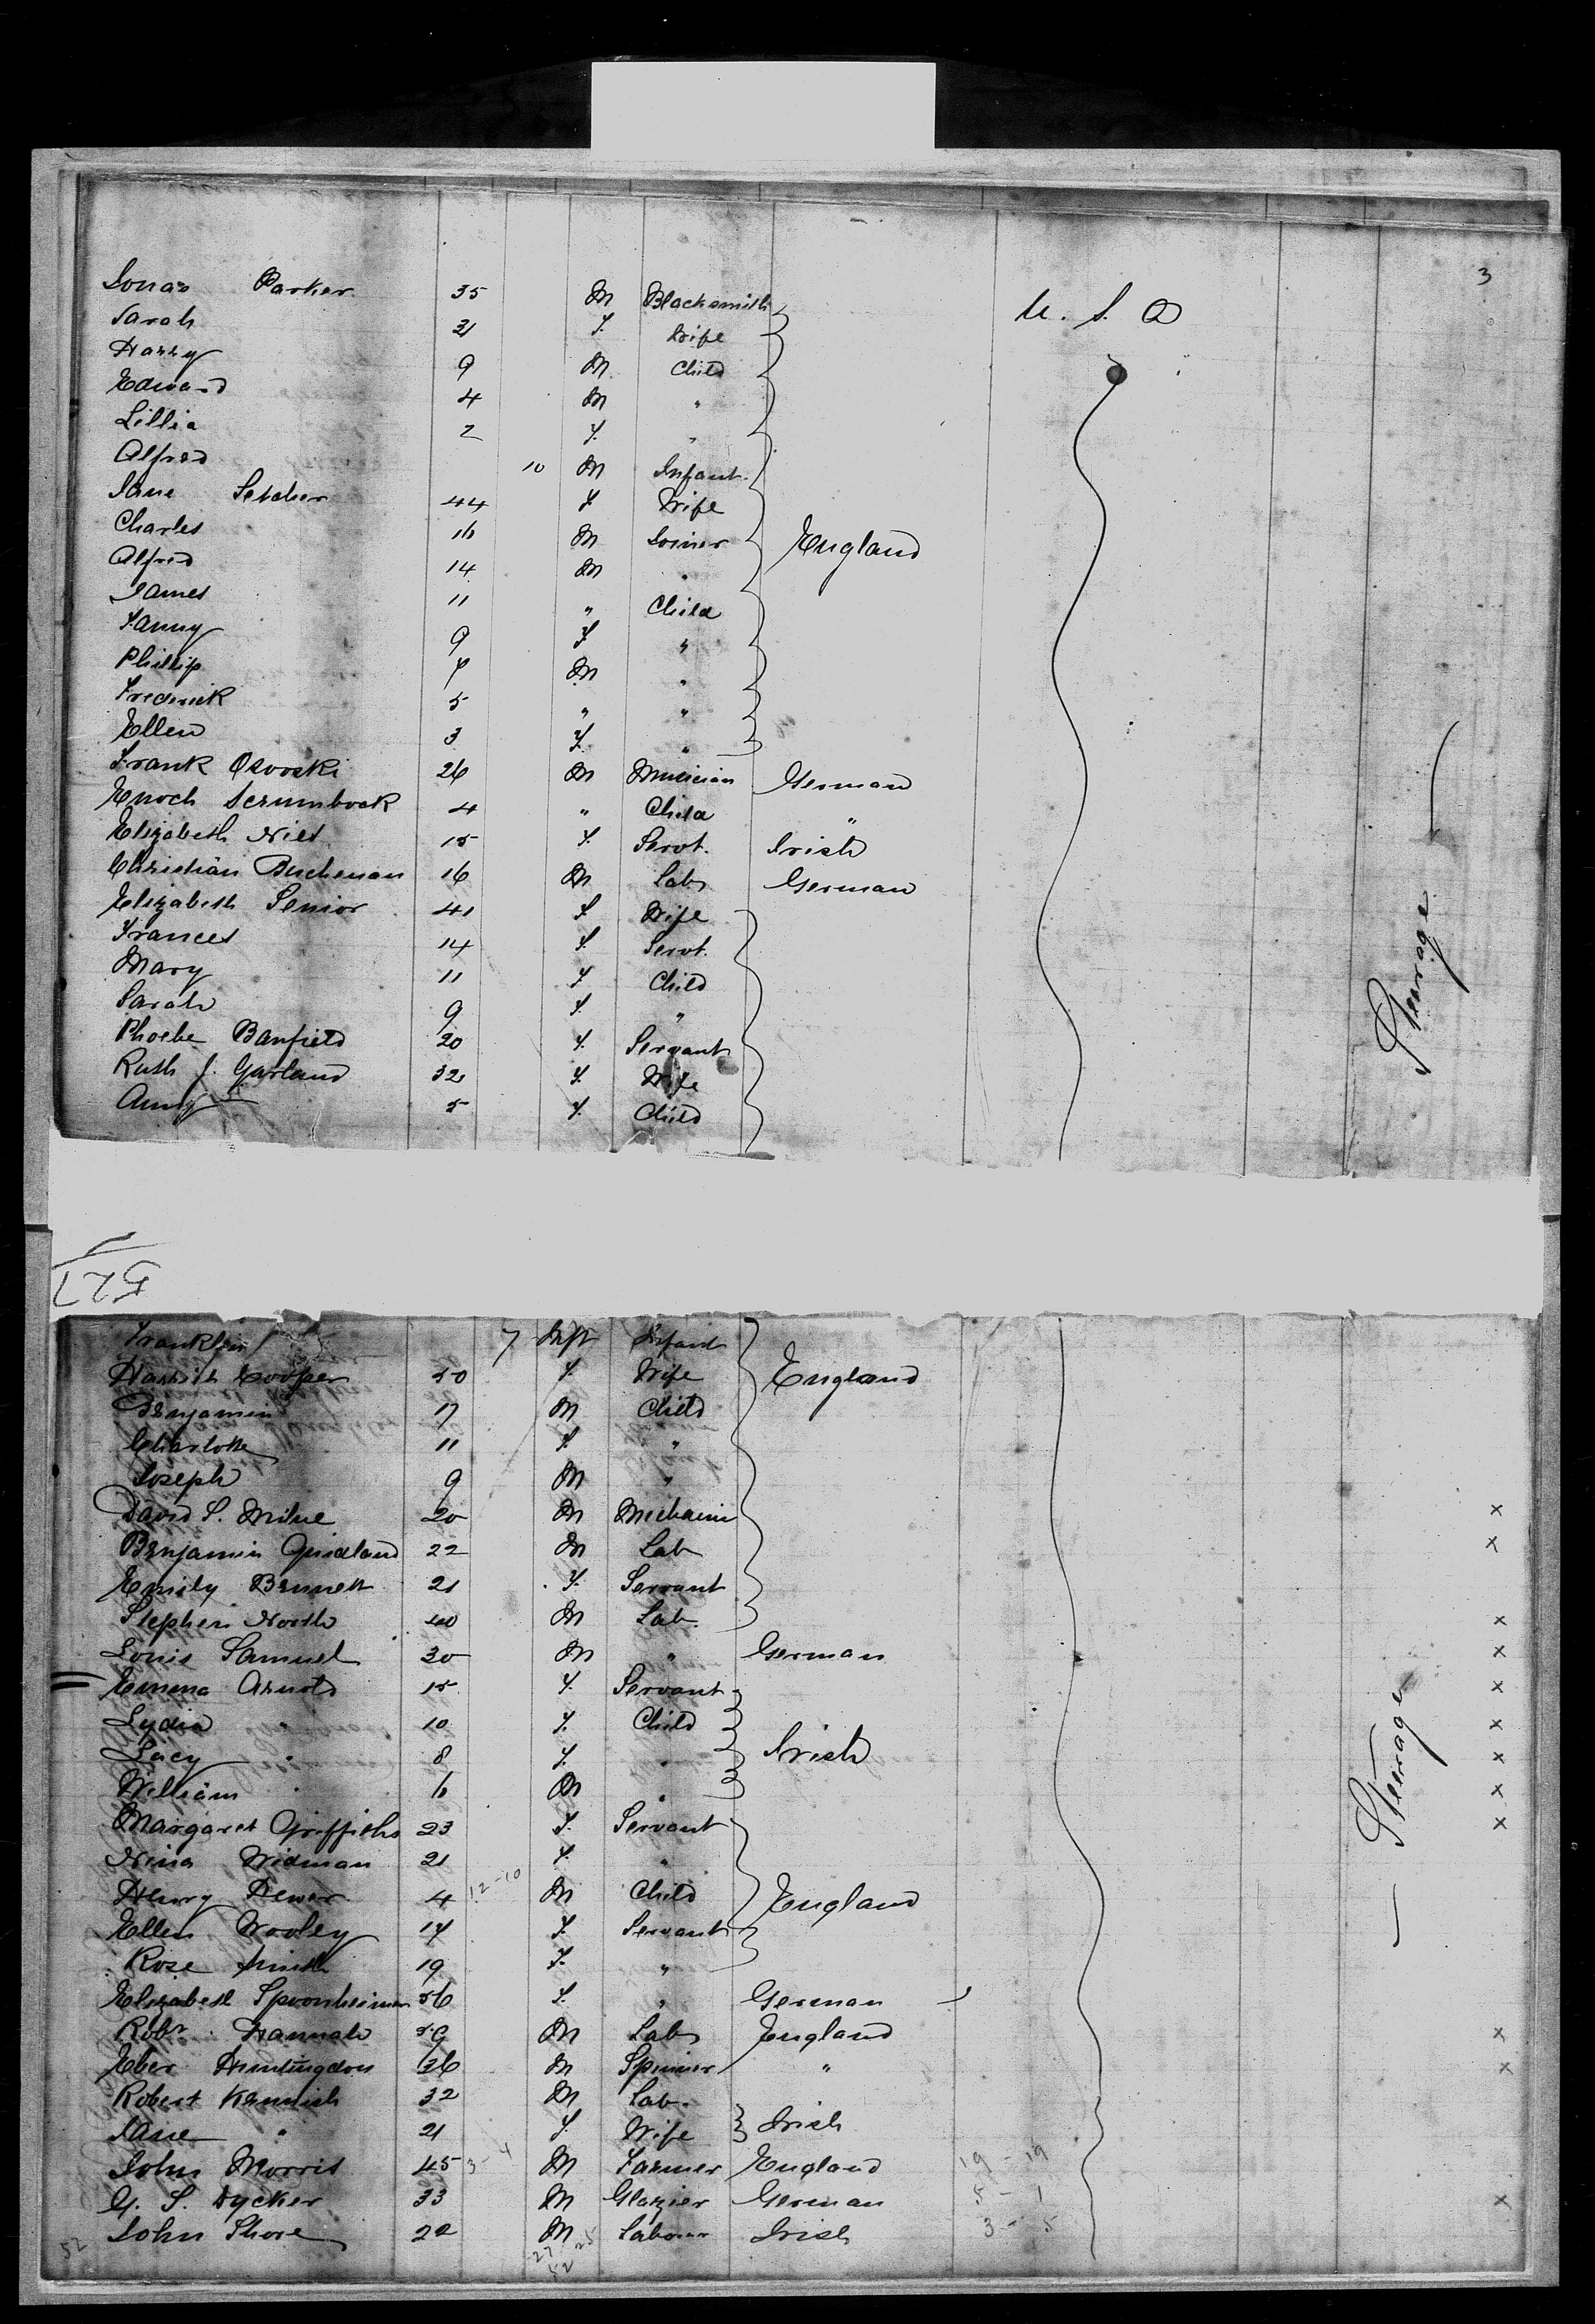 3
Jonas Parker 35 M Blacksmith U. S. A
Sarah 31 F. Wife
Harry 9 M Child
Edward 4 M "
Lillia 2 F. "
Alfred 10 M Infant
Jane Setcher 44 F Wife
Charles 16 M Joiner England
Alfred 14 M "
James 11 " Child
Fanny 9 F "
Phillip 7 M "
Frederick 5 " "
Ellen 3 F. "
Frank Osvoski 26 M Musician German
Enoch 4 " Child "
Elizabeth Niel 15 F. Servt. Irish
Christian Bucheman 16 M Lab German
Elizabeth Senior 41 F Wife
Frances 14 F Servt.
Mary 11 F Child
Sarah 9 F. "
Phoebe Banfield 20 F. Servant
Ruth J. Garland 32 F. Wife
Anny 5 F. Child
Steerage
527
Franklin 7 Inft Infant
Harriet Cooper 50 F. Wife England
Benjamin 17 M Child
Charlotte 11 F. "
Joseph 9 M "
David S. Milne 20 M Mechanic x
Benjamin 22 M Lab x
Emily Bennett 21 F. Servant
Stephen North 40 M Lab. x
Louis Samuel 30 M " German x
Emma Arnold 15 F. Servant x
Lydia " 10 F. Child x
Lucy " 8 F. " Irish x
William " 6 M " x
Margaret Griffiths 23 F. Servant x
Nina Widman 21 F. "
Henry Dewar 4 12-10 M Child England
Ellen Wooley 14 F. Servant
Rose Smith 19 F. "
Elizabeth Spoonheimer 56 F. " German
Robt. Hannah 59 M Lab England x
Eber Huntingdon 36 M Spinner " x
Robert Kennish 32 M Lab.
Jane " 21 F. Wife Irish
John Morris 45 3-4 M Farmer England 19-19
G. S. Dycker 33 M Glazier German 5-1 x
John Shore 22 M Labour Irish 3-5
52 27 25
52
Steerage